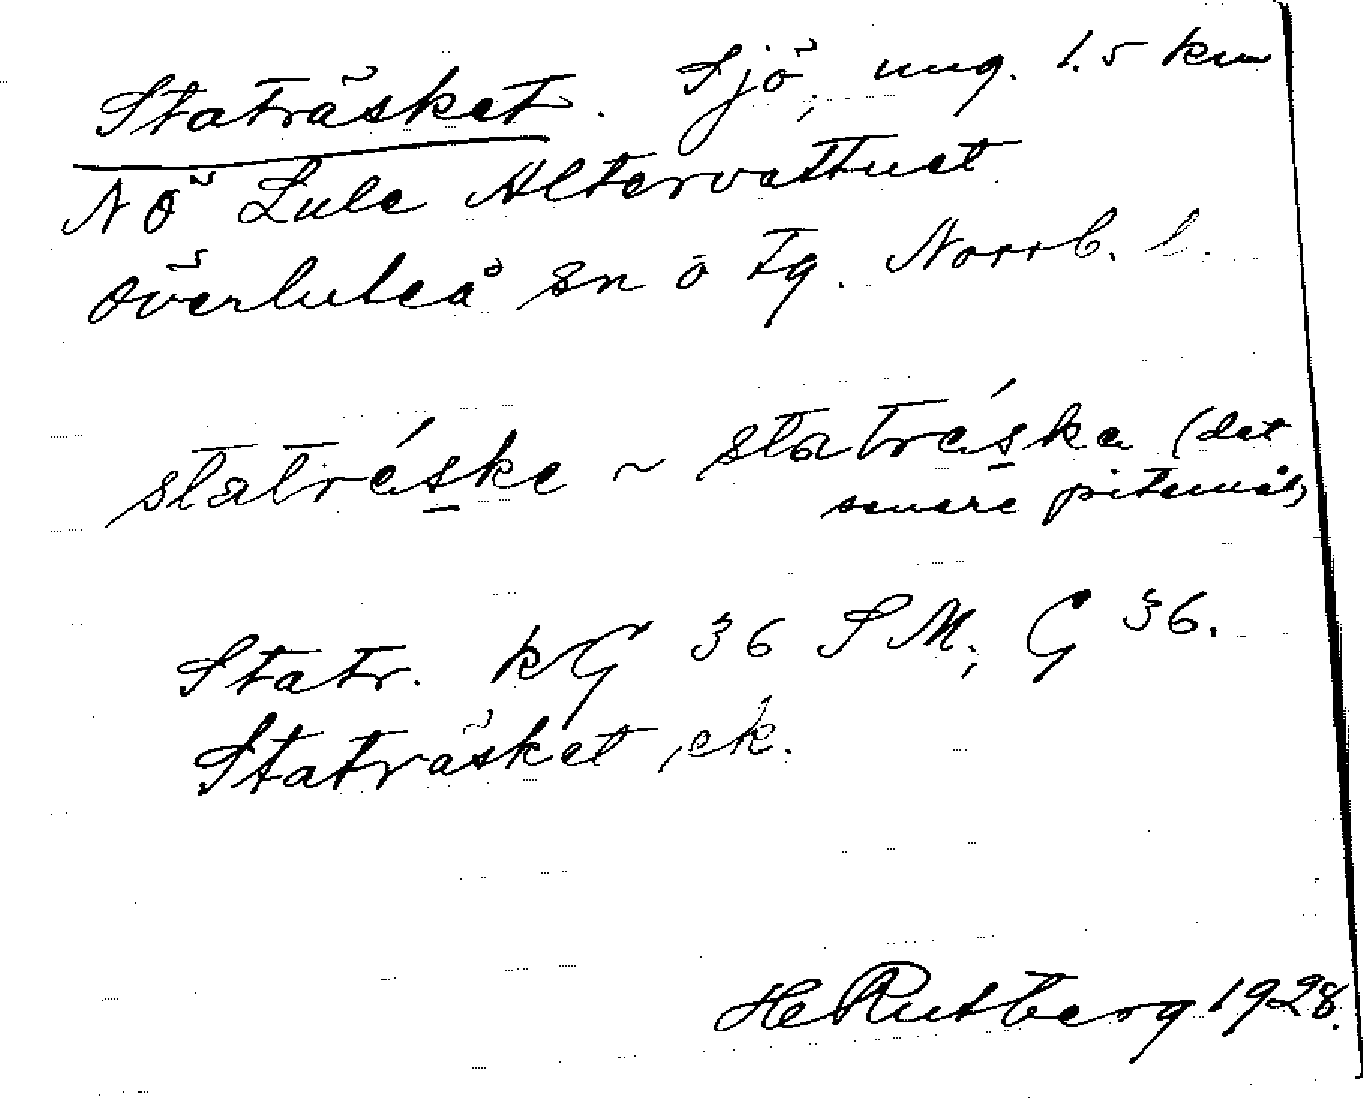 Staträsket. Sjö, ung. 1.5 km
NÖ Lule Altervattnet
Överluleå sn o tg. Norrb. l.
statréske ~ statréska (det
senare pitemål)
Statr. kG 36 SM; G 36.
Staträsket ek.
HeRutberg 1928.